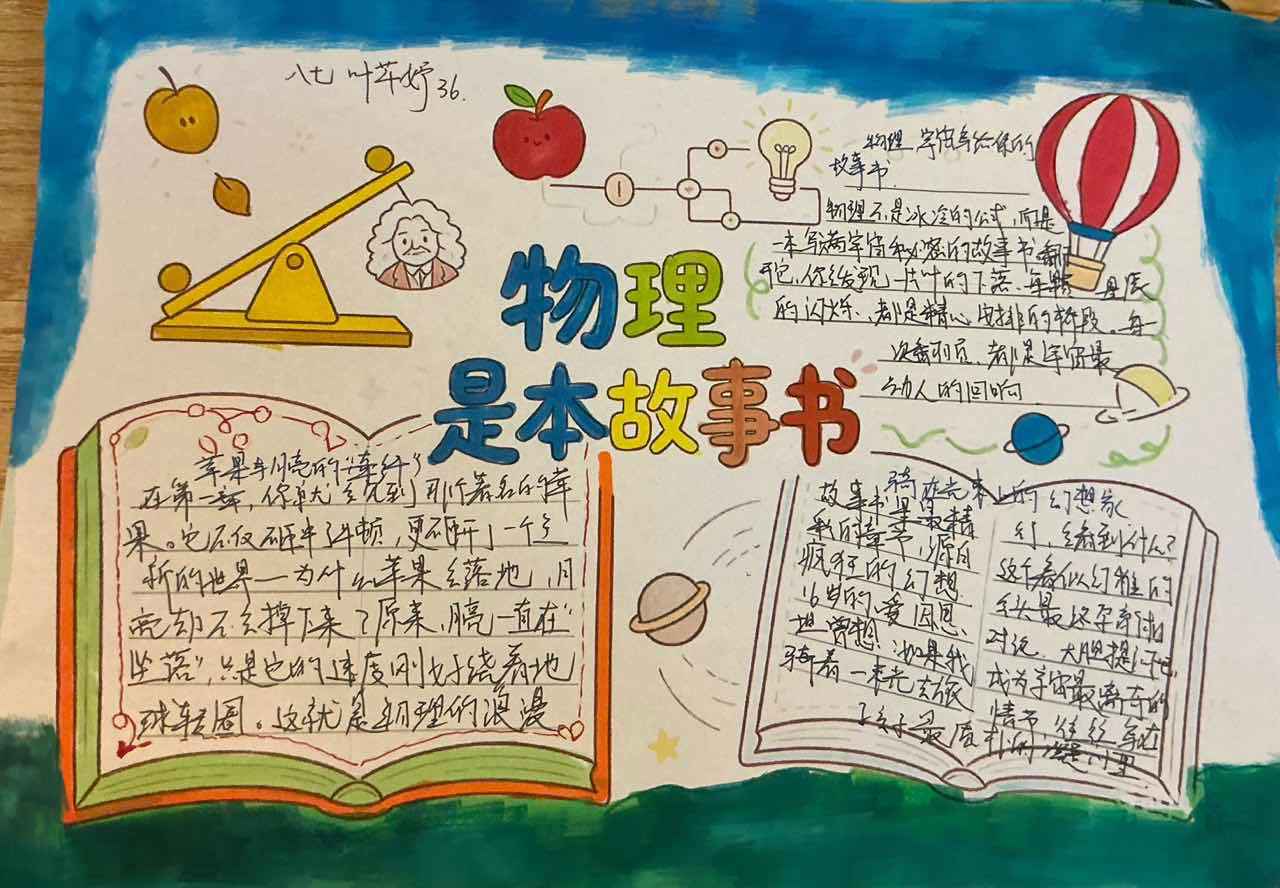 八七 叶芊妤 36.
物理
是本故事书
物理,宇宙写给你的
故事书
物理不是冰冷的公式,而是
一本写满宇宙秘密的故事书翻
开它,你会发现一片叶的下落、每颗星辰
的闪烁、都是精心安排的桥段。每
一次翻页,都是宇宙最
动人的回响
苹果与月亮的“牵绊”
在第一章,你就会见到那个著名的苹
果。它不仅砸中了牛顿,更砸开了一个全
新的世界—为什么苹果会落地,月
亮却不会掉下来?原来,月亮一直在“
坠落”,只是它的速度刚好绕着地
球转圈。这就是物理的浪漫
骑在光束上的幻想家
故事书里最精
彩的章节,源自
疯狂的幻想
16岁的爱因思
坦曾想:如果我
骑着一束光去旅
行,会看到什么?
这个看似幼稚的
念头最终孕育出相
对论。大胆提问吧,
成为宇宙最离奇的
情节,往往写在